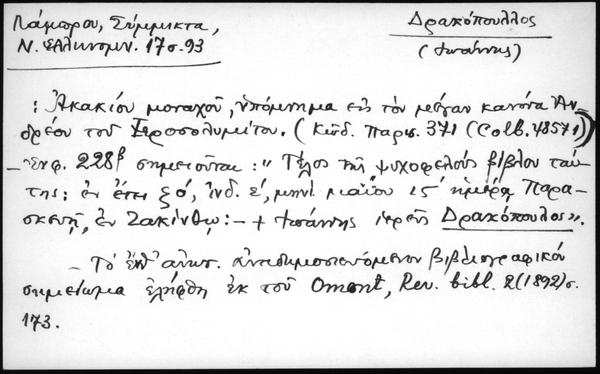 Λάμπρου, Σύμμικτα,
Ν. Ἑλληνομν. 17 σ. 93
Δρακόπουλλος
(Ἰωάννης)
: Ἀκακίου μοναχοῦ, ὑπόμνημα εἰς τὸν μέγαν κανόνα Ἀν-
δρέου τοῦ Ἱεροσολυμίτου. (Κῶδ. Παρισ. 371 (Colb. 4857))
– Ἐν φ. 228β σημειοῦται: "Τέλος τῆς ψυχοφελοῦς βίβλου ταύ-
της: ἐν ἔτει ζό, ἰνδ. έ, μηνὶ μαΐου ις ἡμέρᾳ Παρα-
σκευῇ, ἐν Ζακίνθῳ: – + Ἰωάννης ἱερεὺς Δρακόπουλος».
– Τὸ ἀντιδημοσιευόμενον βιβλιογραφικὸν
σημείωμα ἐλήφθη ἐκ τοῦ Omont, Rev. bibl. 2 (1892) σ.
173.